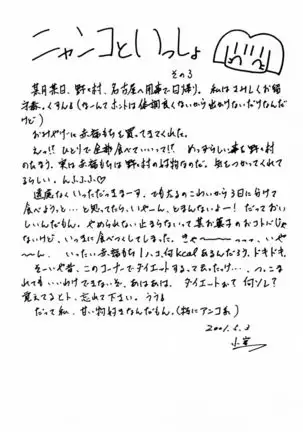 ニャンコといっしょ
その3
某月某日、野々村、名古屋へ用事で日帰り。私はさみしくお留
守番。くすん。(なーんてホントは体調良くないから出かけないだけなんだ
けど)
おみやげに赤福もちを買ってきてくれた。
えっ!? ひとりで全部食べていいって!? めっずらしい事を野々村
のたまう。実は赤福もちは野々村の好物なのだ。気をつかってくれて
るらしい。んふふふ♡
遠慮なくいっただっきまーす。でも太るのこわいから3日に分けて
食べようっと…と思ってたら、いやーん、とまんないよー! だっておい
しいんだもん。やめられない止まらないって某お菓子のおコトバじゃ
ないけど、いっきに食べつくしてしまった。きゃ〜〜っっっ、いや
〜ん。いったい赤福もち1ハコ何kcalあるんだろう、ドキドキ。
そーいや昔、このコーナーでダイエットするって云ったっけ…、つっこま
れてもいいわけできないぞ、あはあは。ダイエットぉ? 何ソレ?
覚えてるヒト、忘れて下さい。ううう
だって私、甘い物好きなんだもん。(特にアンコ系)
2001.2.3